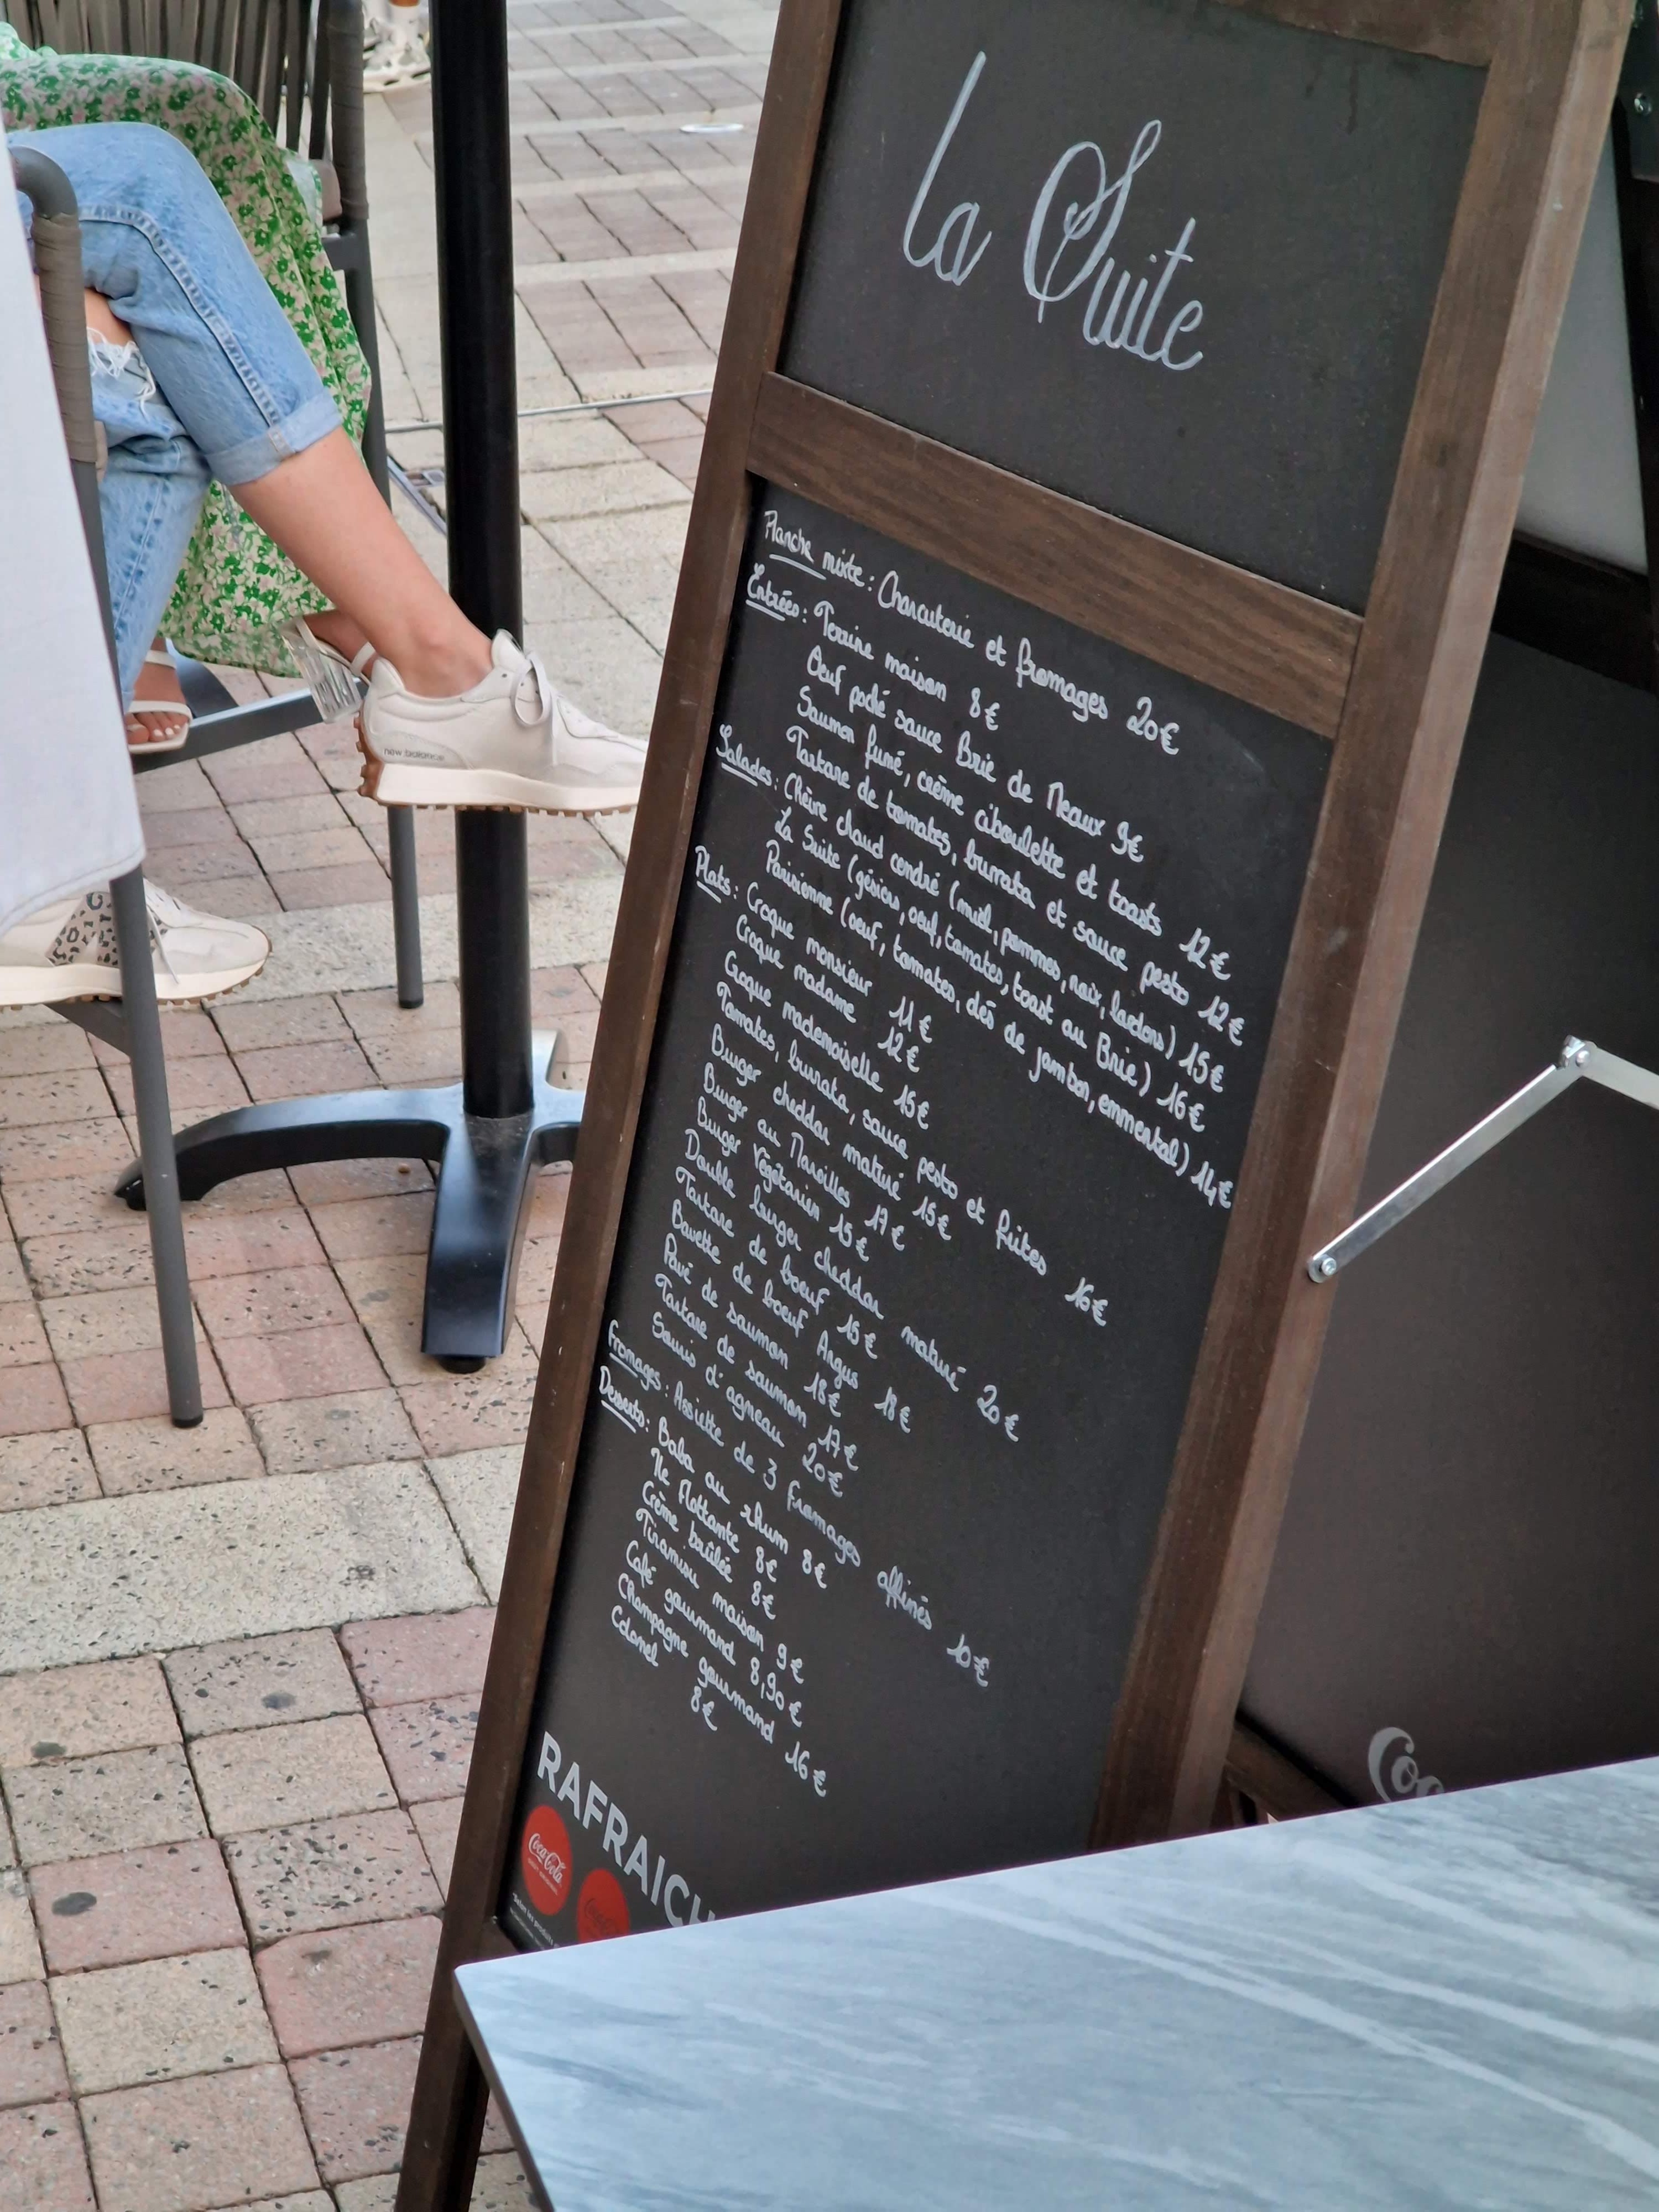 La Suite
Planche mixte : Charcuterie et fromages 20€
Entrées : Terrine maison 8€
Oeuf poché sauce Brie de Meaux 9€
Saumon fumé, crème ciboulette et toasts 12€
Tartare de tomates, burrata et sauce pesto 12€
Salades : Chèvre chaud cendré (miel, pommes, noix, lardons) 15€
La Suite (gésiers, oeuf, tomates, toast au Brie) 16€
Parisienne (oeuf, tomates, dés de jambon, emmental) 14€
Plats : Croque monsieur 11€
Croque madame 12€
Croque mademoiselle 15€
Tomates, burrata, sauce pesto et frites 16€
Burger cheddar maturé 15€
Burger au Maroilles 17€
Burger Végétarien 15€
Double burger cheddar maturé 20€
Tartare de boeuf 15€
Bavette de boeuf Angus 18€
Pavé de saumon 18€
Tartare de saumon 17€
Souris d'agneau 20€
Fromages : Assiette de 3 fromages affinés 10€
Desserts : Baba au rhum 8€
Ile flottante 8€
Crème brûlée 8€
Tiramisu maison 9€
Café gourmand 8,90€
Champagne gourmand 16€
Colonel 8€
RAFRAICH
Coca-Cola
new balance